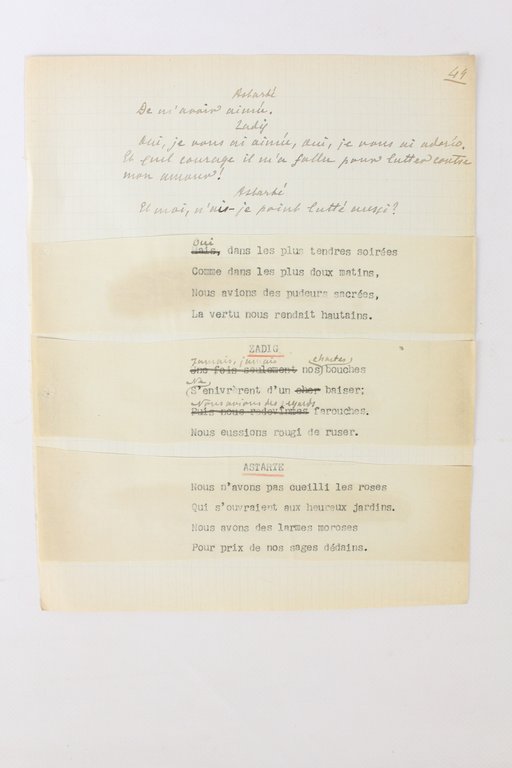 49
Astarté
De m'avoir aimée.
Zadig
Oui, je vous ai aimée, oui, je vous ai adorée.
Et quel courage il m'a fallu pour lutter contre
mon amour!
Astarté
Et moi, n'ais-je point lutté aussi?
Oui
Mais, dans les plus tendres soirées
Comme dans les plus doux matins,
Nous avions des pudeurs sacrées,
La vertu nous rendait hautains.
ZADIG
Jamais, jamais chastes,
Une fois seulement nos bouches
Ne,
S'enivrèrent d'un cher baiser;
Nous avions des regards
Puis nous redevînmes farouches.
Nous eussions rougi de ruser.
ASTARTE
Nous n'avons pas cueilli les roses
Qui s'ouvraient aux heureux jardins.
Nous avons des larmes moroses
Pour prix de nos sages dédains.